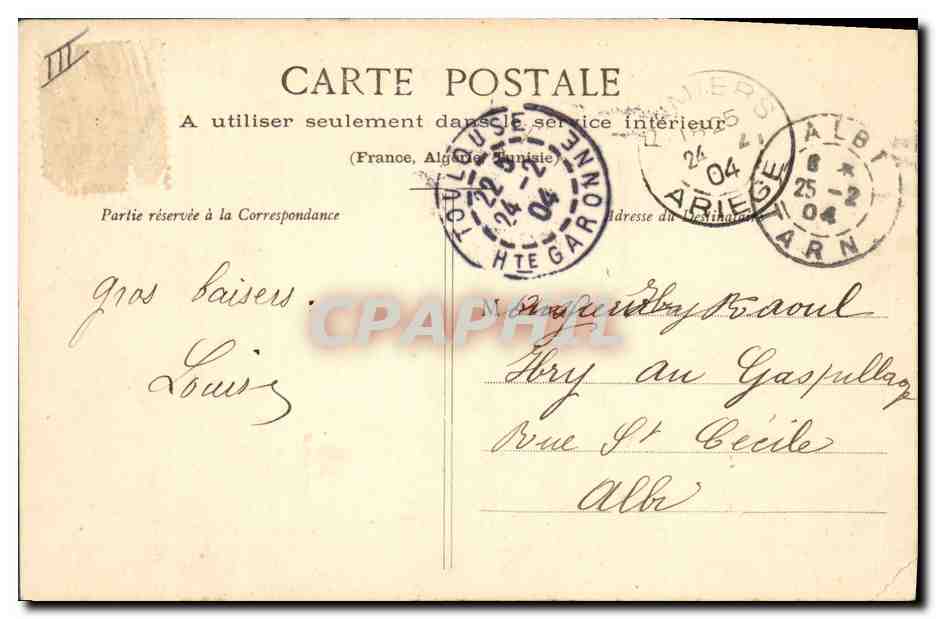 III
CARTE POSTALE
A utiliser seulement dans le service intérieur
(France, Algérie, Tunisie)
TOULOUSE
22
24 -2
04
HTE GARONNE
MIERS
24
04
ARIEGE
ALBI
6 *
25 -2
04
TARN
Partie réservée à la Correspondance
Adresse du Destinataire
gros baisers.
Louise
M. Raoul
Ibry au Gaspillage
Rue St Cécile
Albi
CPAPHIL